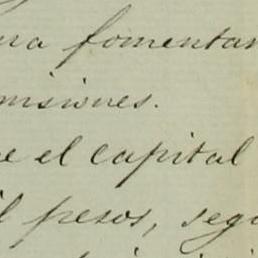 fomentar
misiones.
el capital
pesos, segu